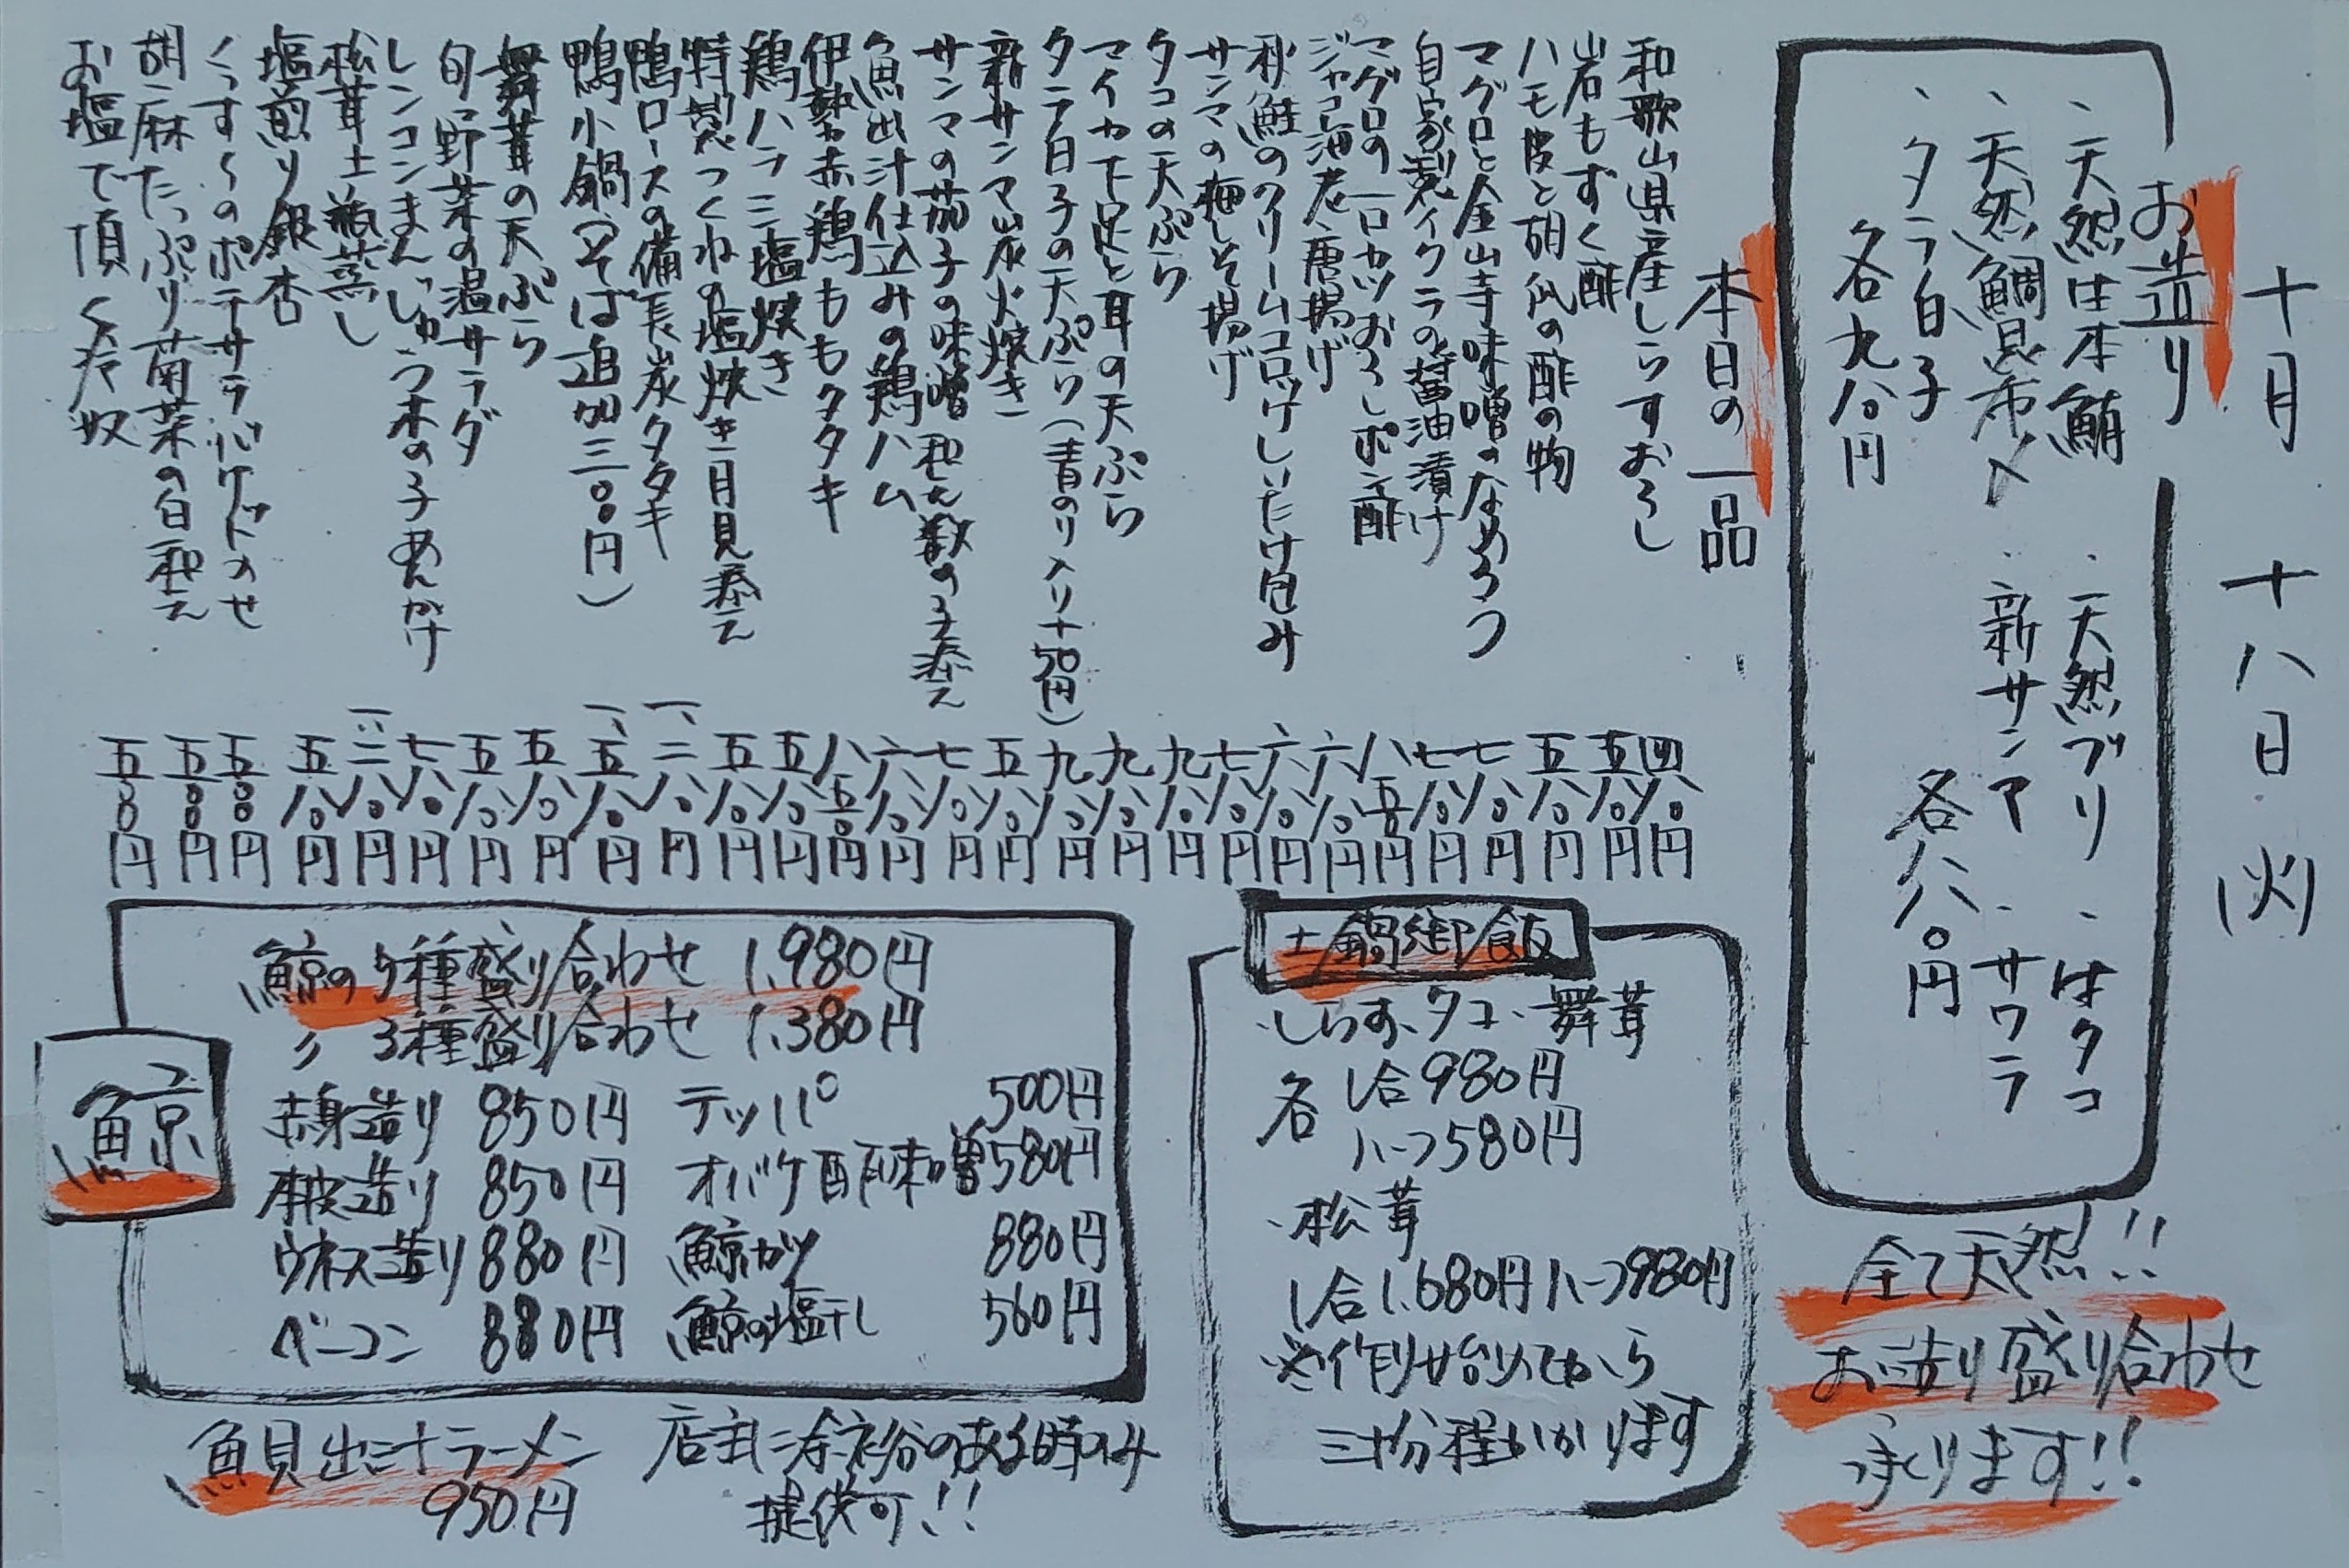 十月 十八日(火)
お造り
、天然生本鮪 、天然ブリ 、はタコ
、天然鯛昆布〆 、新サンマ 、サワラ
、タラ白子
各九八〇円 各八八〇円
全て天然!!
お造り盛り合わせ
承ります!!
本日の一品
和歌山県産しらすおろし 四八〇円
岩もずく酢 五八〇円
ハモ皮と胡瓜の酢の物 五八〇円
マグロと金山寺味噌のなめろう 七八〇円
自家製イクラの醤油漬け 七八〇円
マグロの一口カツおろしポン酢 八五〇円
ジャコ海老唐揚げ 六八〇円
秋鮭のクリームコロッケしいたけ包み 六八〇円
サンマの梅しそ揚げ 七八〇円
タコの天ぷら 九八〇円
マイカ下足と耳の天ぷら 九八〇円
タラ白子の天ぷら(青のり入り+50円) 九八〇円
新サンマ炭火焼き 五八〇円
サンマの茄子の味噌和え数の子添え 七八〇円
魚出汁仕込みの鶏ハム 六八〇円
伊勢赤鶏ももタタキ 八五〇円
鶏ハラミ塩焼き 五八〇円
特製つくねの塩焼き月見添え 五八〇円
鴨ロースの備長炭タタキ 一、二八〇円
鴨小鍋(そば追加三〇〇円) 一、五八〇円
舞茸の天ぷら 五八〇円
旬の野菜の温サラダ 五八〇円
レンコンまんじゅう木の子あんかけ 七八〇円
松茸土瓶蒸し 一、二八〇円
塩煎り銀杏 五八〇円
くっすくのポテサラバケットのせ 五〇〇円
胡麻たっぷり菊菜の白和え 五〇〇円
お塩で頂く冷奴 五〇〇円
土鍋御飯
・しらす、タコ、舞茸
各 1合980円
ハーフ580円
・松茸
1合1,680円ハーフ980円
※作り始めてから
三十分程かかります
鯨
鯨の5種盛り合わせ 1,980円
〃 3種盛り合わせ 1,380円
赤身造り 850円 テッパ 500円
本皮造り 850円 オバケ酢味噌 580円
ウネス造り 880円 鯨カツ 880円
ベーコン 880円 鯨の塩干し 560円
魚貝出汁ラーメン
950円
店主に余裕のある時のみ
提供可!!